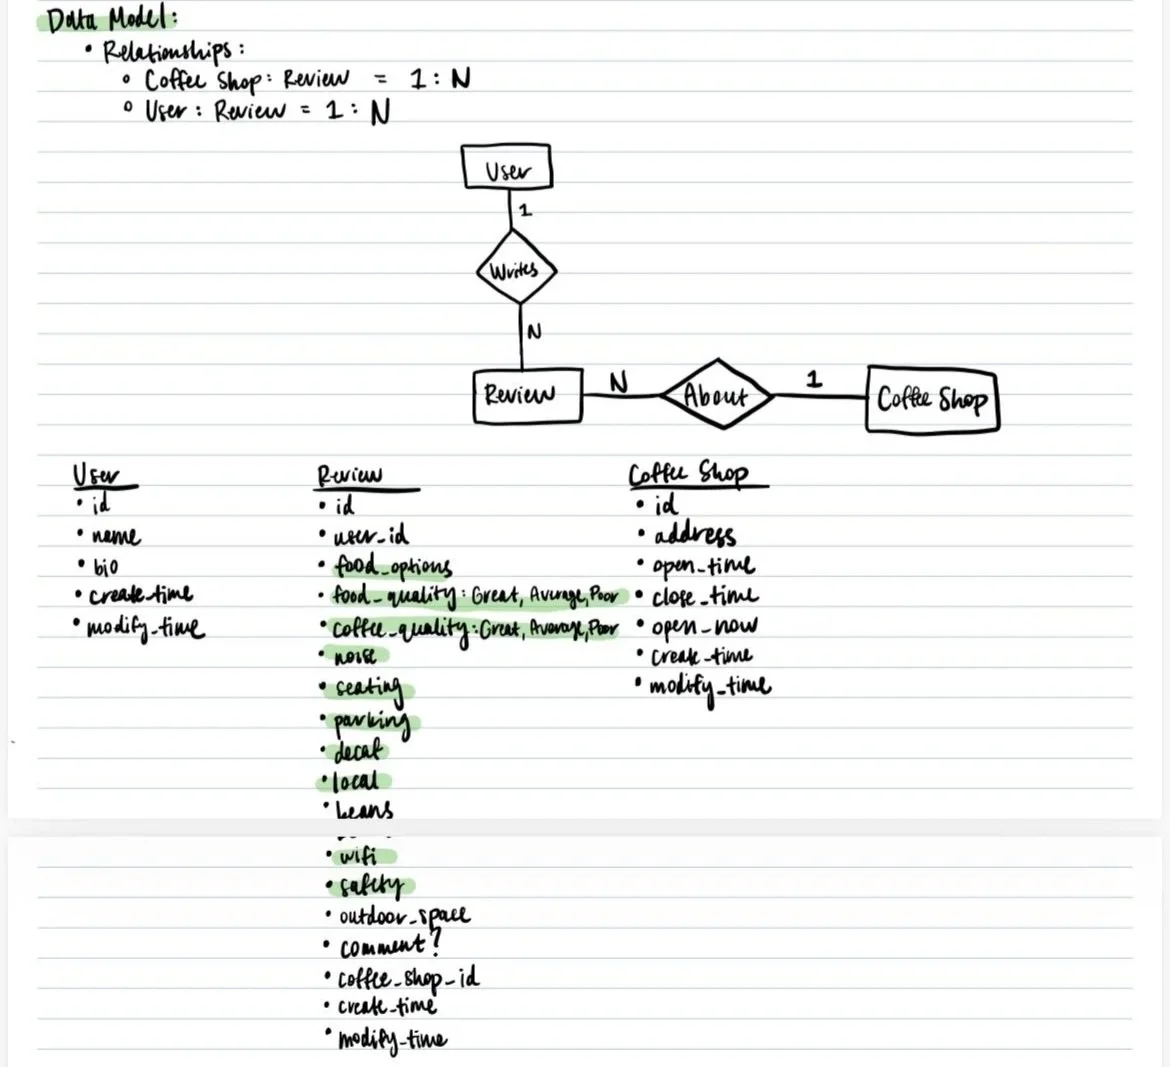 Data Model:
• Relationships:
○ Coffee Shop: Review = 1:N
○ User: Review = 1:N
User
1
Writes
N
Review
N
About
1
Coffee Shop
User
• id
• name
• bio
• create_time
• modify_time
Review
• id
• user_id
• food_options
• food_quality: Great, Average, Poor
• coffee_quality: Great, Average, Poor
• noise
• seating
• parking
• decaf
• local
• beans
• wifi
• safety
• outdoor_space
• comment?
• coffee_shop_id
• create_time
• modify_time
Coffee Shop
• id
• address
• open_time
• close_time
• open_now
• create_time
• modify_time